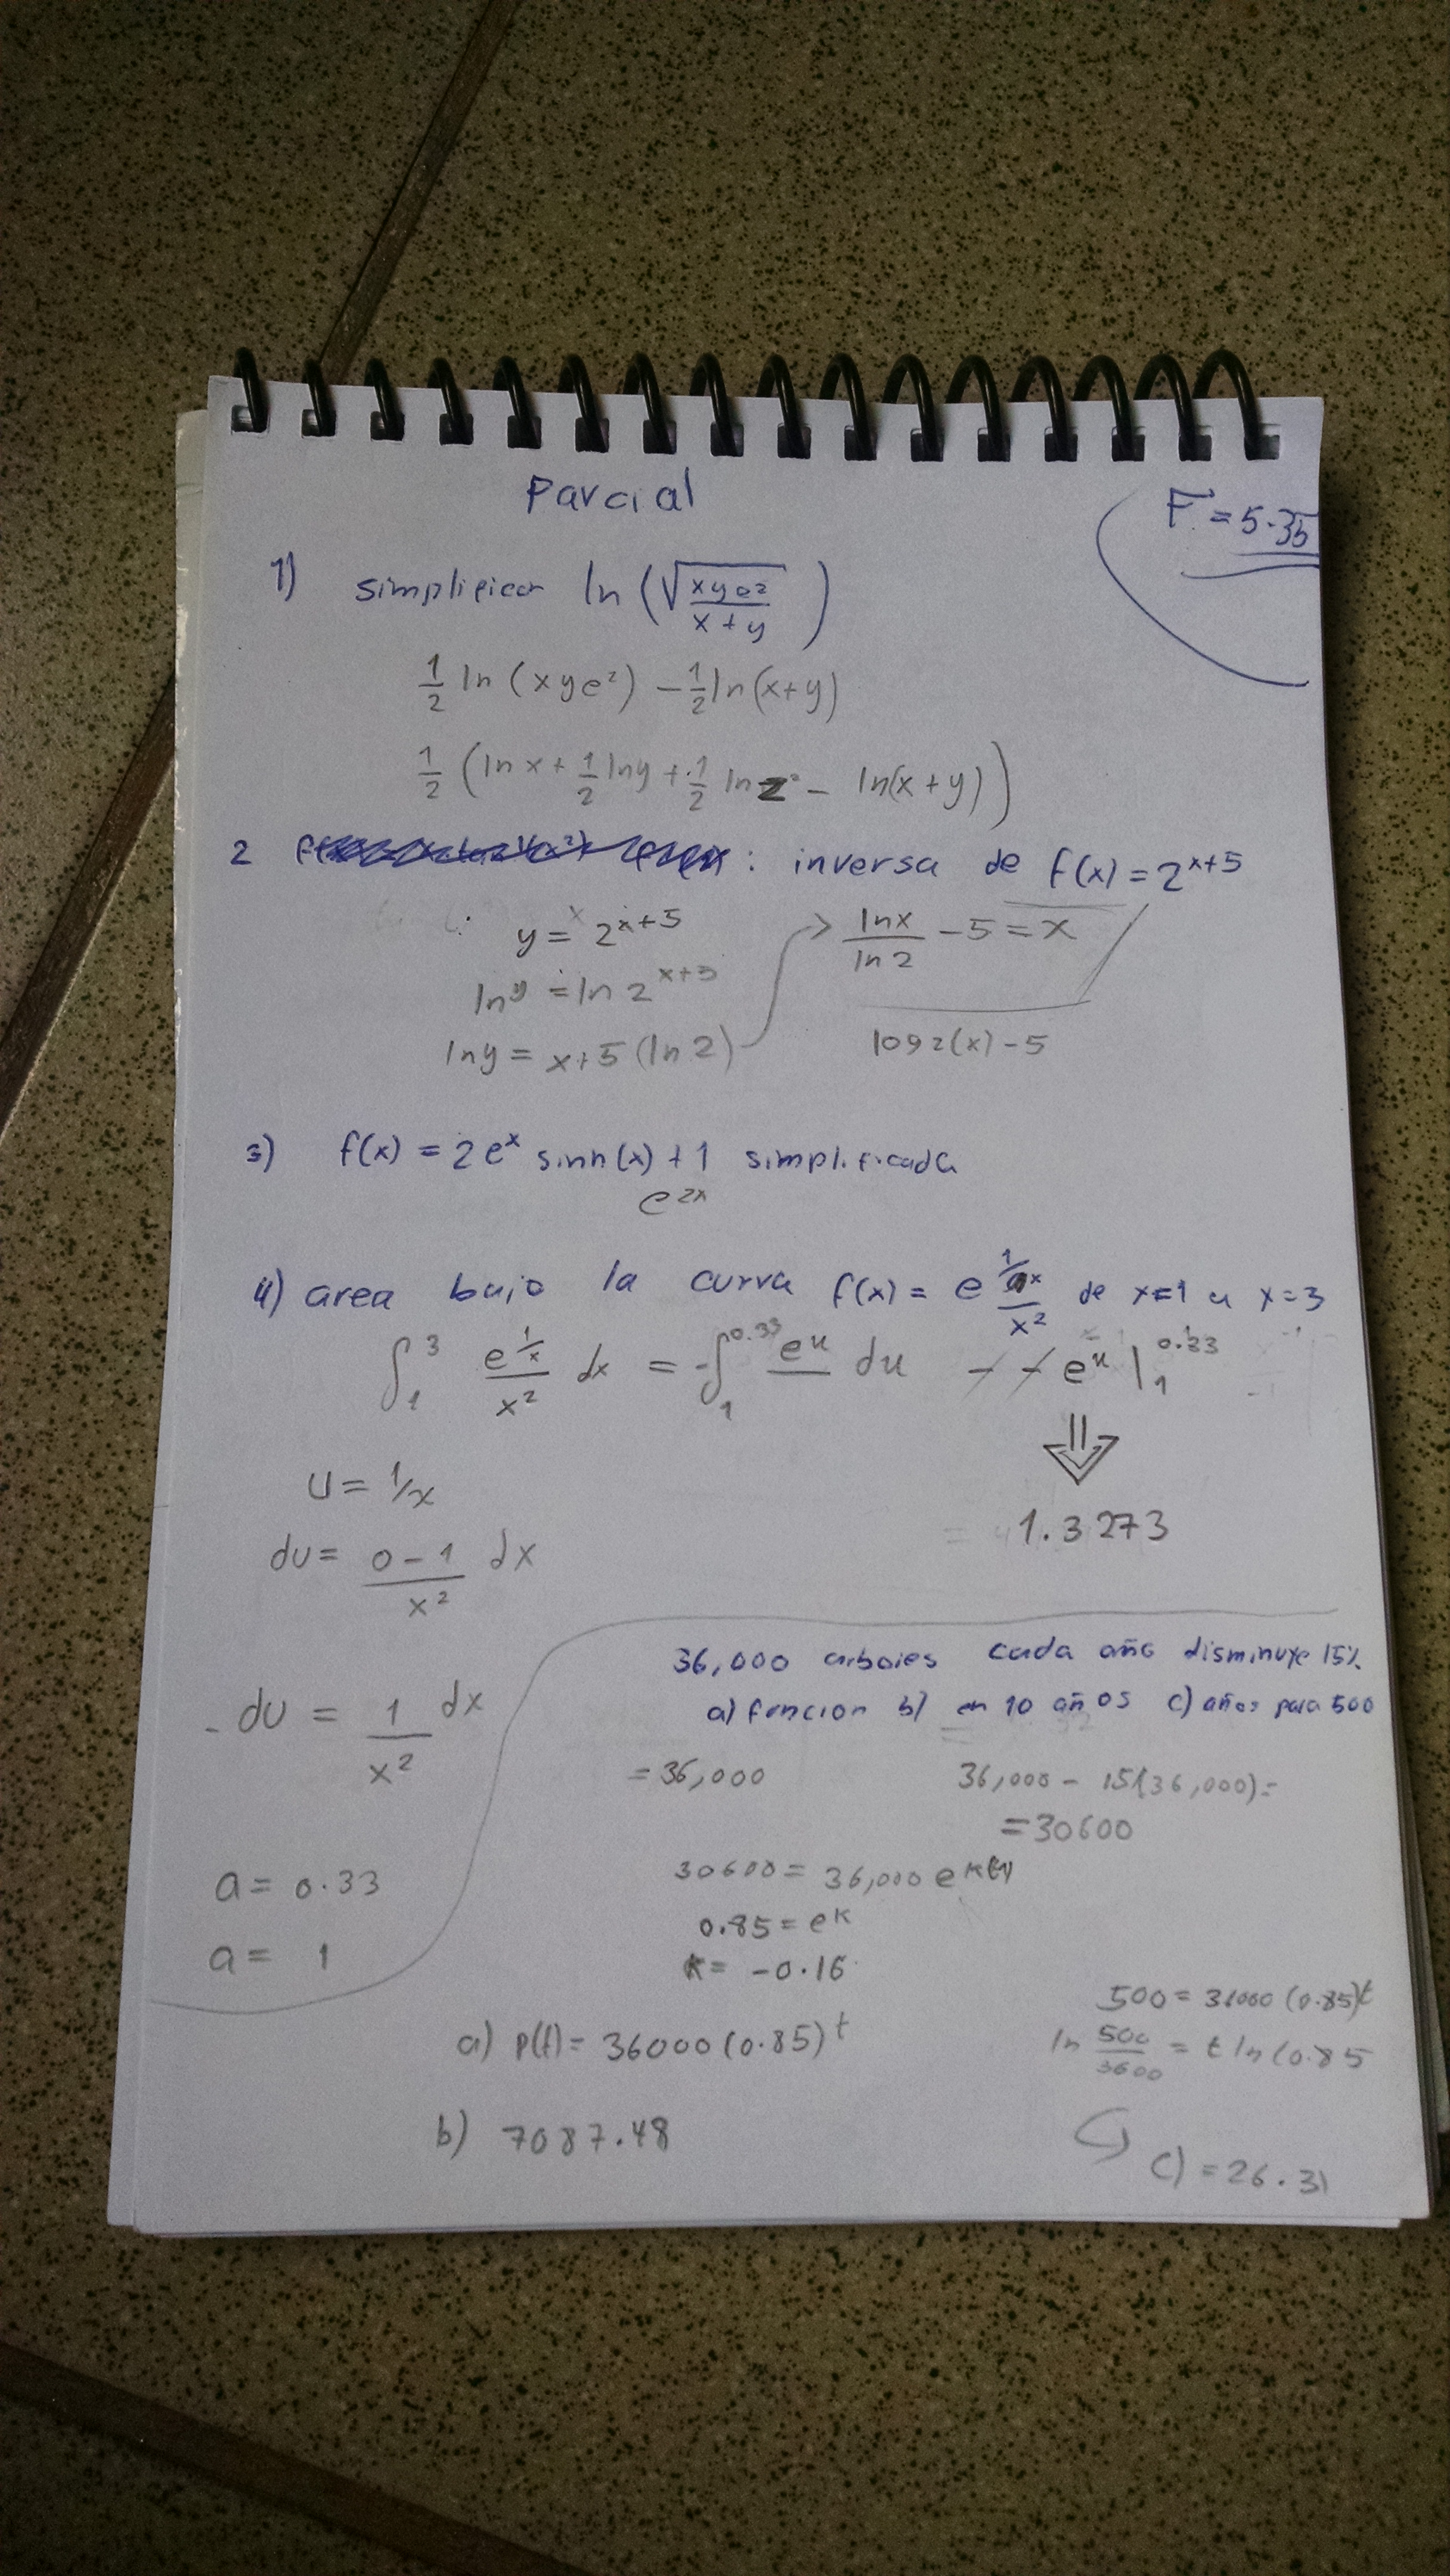 Parcial
F = 5.35
1) simplificar ln (√(xye²/x+y))
1/2 ln (xye²) - 1/2 ln(x+y)
1/2 (ln x + 1/2 ln y + 1/2 ln z - ln(x+y))
2 : inversa de f(x) = 2^(x+5)
y = 2^(x+5)
ln y = ln 2^(x+5)
ln y = x+5 (ln 2)
ln x / ln 2 - 5 = x
log 2(x) - 5
3) f(x) = 2e^x sinh(x) + 1 simplificada
e^(2x)
4) area bajo la curva f(x) = e^(1/x) / x² de x=1 a x=3
∫₁³ e^(1/x) / x² dx = -∫₁^0.33 e^u du - - e^u |₁^0.33
1.3273
u = 1/x
du = 0-1 / x² dx
- du = 1 / x² dx
a = 0.33
a = 1
36,000 arboles cada año disminuye 15%
a) funcion b) en 10 años c) años para 500
= 36,000
36,000 - 15%(36,000) =
= 30600
30600 = 36,000 e^k(1)
0.85 = e^k
k = -0.16
a) p(t) = 36000 (0.85)^t
b) 7087.48
500 = 36000 (0.85)^t
ln 500/3600 = t ln (0.85
c) = 26.31